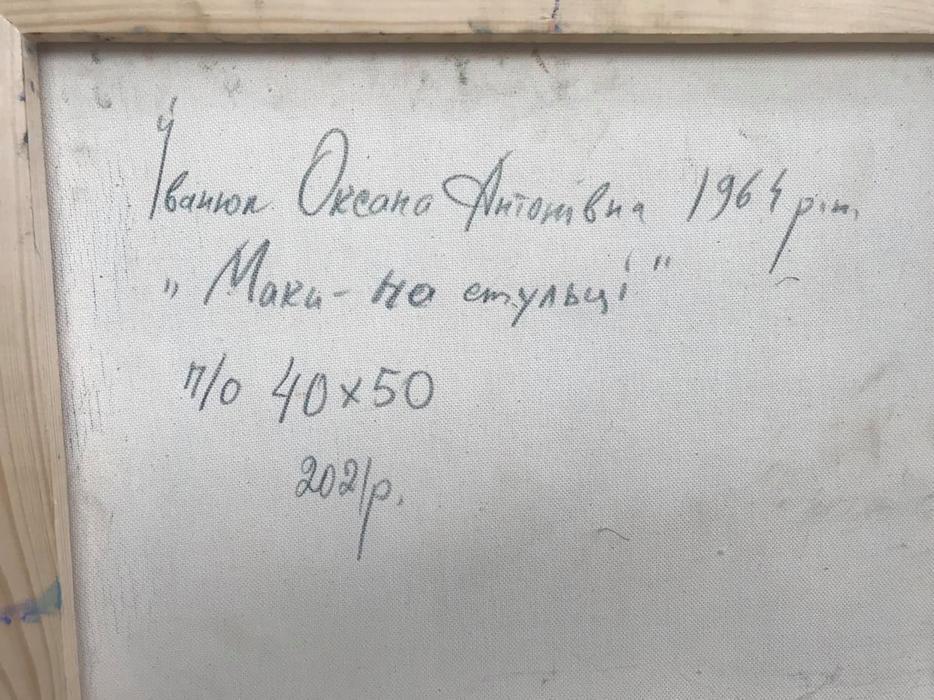 Іванюк Оксана Антонівна 1964 р.н.
„Маки - на стульці"
п/о 40x50
2021р.